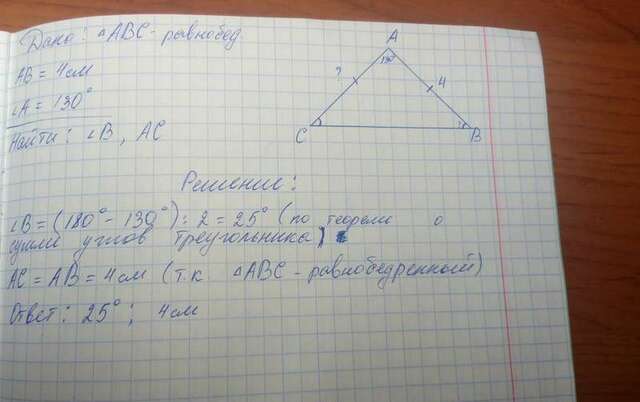 Дано: △ABC - равнобед.
AB = 4см
∠A = 130°
Найти: ∠B, AC
A
130°
?
4
C
B
Решение:
∠B = (180° - 130°) : 2 = 25° (по теореме о
сумме углов треугольника)
AC = AB = 4см (т.к △ABC - равнобедренный)
Ответ: 25° ; 4см